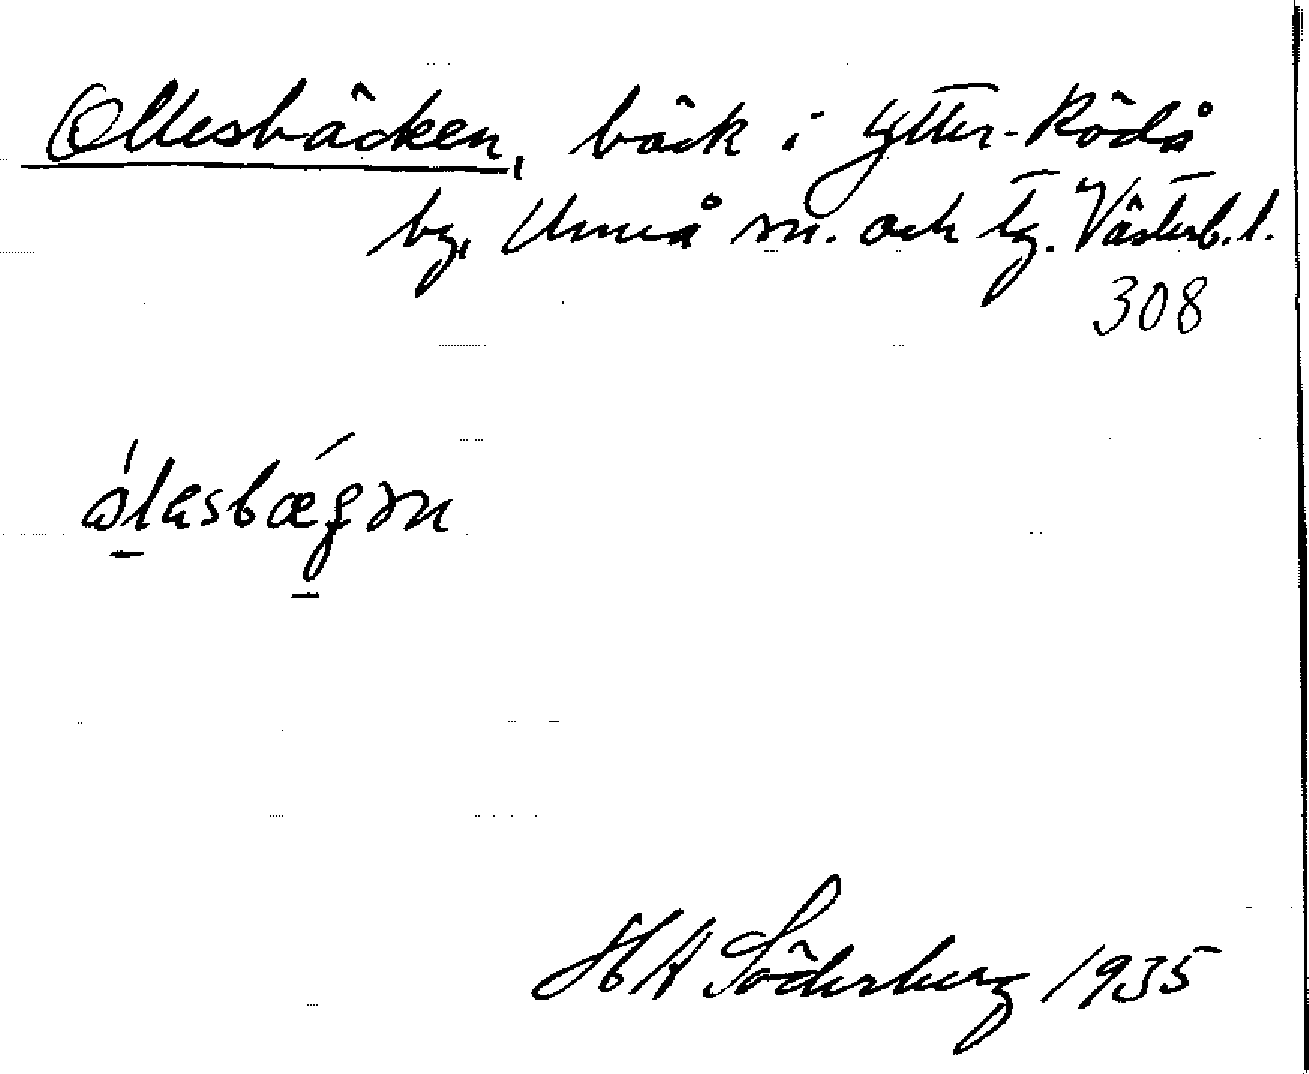 Ollesbäcken, bäck i Ytter-Rödå
by, Umeå sn. och tg. Västerb. l.
308
H A Söderberg 1935